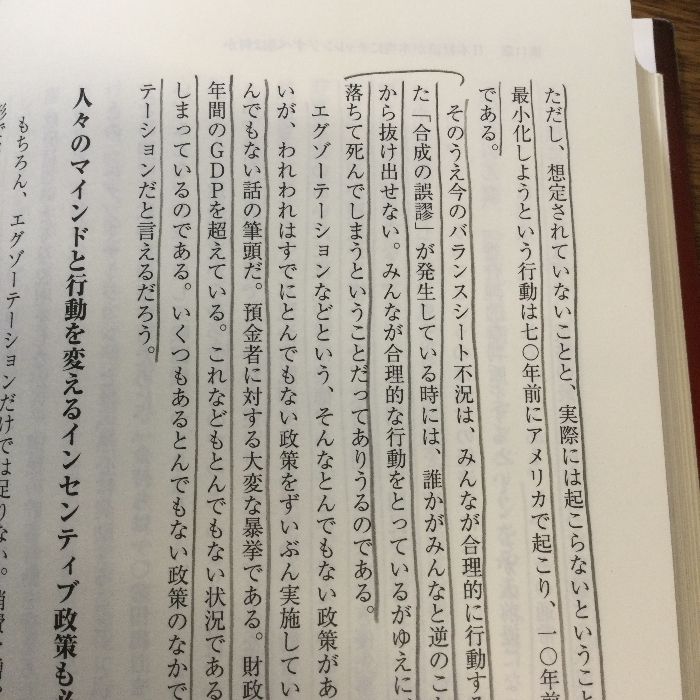 ただし、想定されていないことと、実際には起こらないということ
最小化しようという行動は七〇年前にアメリカで起こり、一〇年前
である。
そのうえ今のバランスシート不況は、みんなが合理的に行動す
た「合成の誤謬」が発生している時には、誰かがみんなと逆のこ
から抜け出せない。みんなが合理的な行動をとっているがゆえに
落ちて死んでしまうということだってありうるのである。
エグゾーテーションなどという、そんなとんでもない政策があ
いが、われわれはすでにとんでもない政策をずいぶん実施してい
んでもない話の筆頭だ。預金者に対する大変な暴挙である。財政
年間のGDPを超えている。これなどもとんでもない状況である
しまっているのである。いくつもあるとんでもない政策のなかで
テーションだと言えるだろう。
人々のマインドと行動を変えるインセンティブ政策も
もちろん、エグゾーテーションだけでは足りない。消費